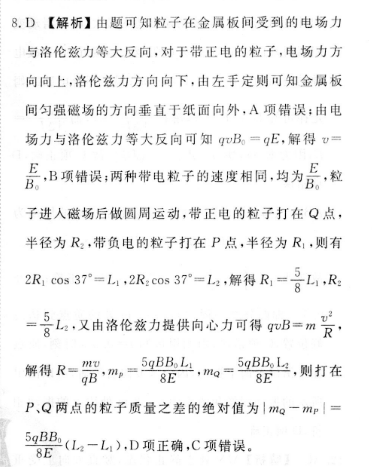 8. D 【解析】由题可知粒子在金属板间受到的电场力
与洛伦兹力等大反向,对于带正电的粒子,电场力方
向向上,洛伦兹力方向向下,由左手定则可知金属板
间匀强磁场的方向垂直于纸面向外,A 项错误;由电
场力与洛伦兹力等大反向可知 qvB₀=qE,解得 v=
E/B₀,B 项错误;两种带电粒子的速度相同,均为E/B₀,粒
子进入磁场后做圆周运动,带正电的粒子打在 Q 点,
半径为 R₂,带负电的粒子打在 P 点,半径为 R₁,则有
2R₁ cos 37°=L₁,2R₂cos 37°=L₂,解得 R₁=5/8L₁,R₂
=5/8L₂,又由洛伦兹力提供向心力可得 qvB=m v²/R,
解得 R=mv/qB,m_P=5qBB₀L₁/8E,m_Q=5qBB₀L₂/8E,则打在
P、Q 两点的粒子质量之差的绝对值为|m_Q-m_P|=
5qBB₀/8E(L₂-L₁),D 项正确,C 项错误。